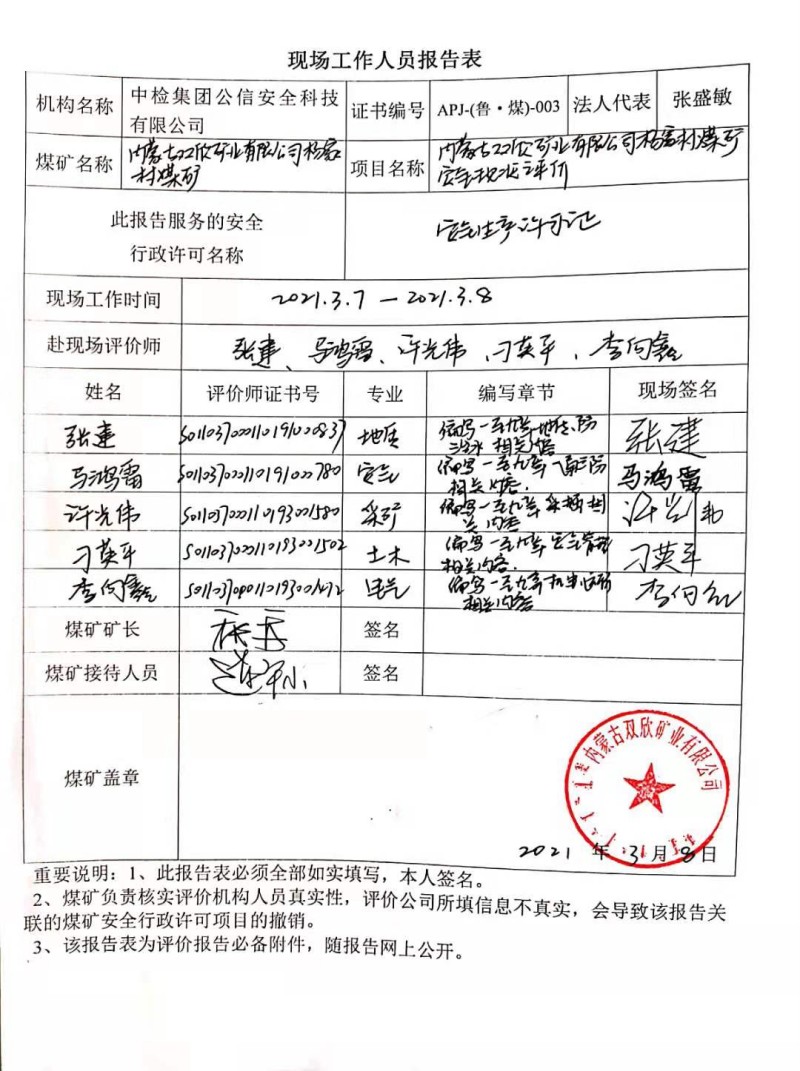 现场工作人员报告表
机构名称
中检集团公信安全科技
有限公司
证书编号
APJ-(鲁·煤)-003
法人代表
张盛敏
煤矿名称
内蒙古双欣矿业有限公司杨家
村煤矿
项目名称
内蒙古双欣矿业有限公司杨家村煤矿
安全现状评价
此报告服务的安全
行政许可名称
安全生产许可证
现场工作时间
2021.3.7 — 2021.3.8
赴现场评价师
张建、马鸿雷、许光伟、刁英平、李向鑫
姓名
评价师证书号
专业
编写章节
现场签名
张建
S011037000110191000837
地质
编写一至九章地质、防
治水相关内容
张建
马鸿雷
S011037000110191000780
安全
编写一至九章
相关内容
马鸿雷
许光伟
S011037000110193001580
采矿
编写一至九章采掘相
关内容
许光伟
刁英平
S011037000110193001502
土木
编写一至九章安全管理
相关内容
刁英平
李向鑫
电气
编写一至九章机电
相关内容
煤矿矿长
签名
煤矿接待人员
签名
煤矿盖章
内蒙古双欣矿业有限公司
2021年3月8日
重要说明：1、此报告表必须全部如实填写，本人签名。
2、煤矿负责核实评价机构人员真实性，评价公司所填信息不真实，会导致该报告关
联的煤矿安全行政许可项目的撤销。
3、该报告表为评价报告必备附件，随报告网上公开。